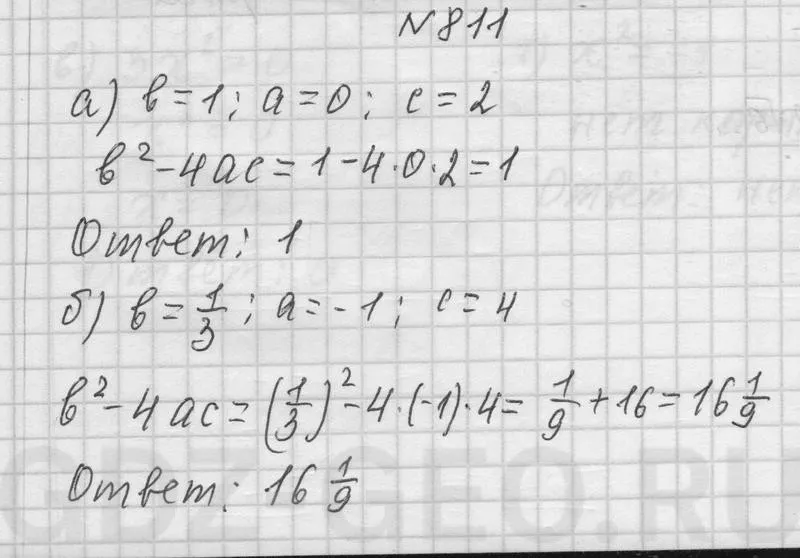 N811
а) в = 1; а = 0; с = 2
в² - 4ас = 1 - 4·0·2 = 1
Ответ: 1
б) в = 1/3; а = -1; с = 4
в² - 4ас = (1/3)² - 4·(-1)·4 = 1/9 + 16 = 16 1/9
Ответ: 16 1/9
GDZ-GEO.RU